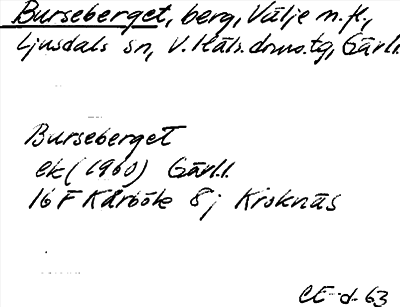 Burseberget, berg, Välje m.fl.,
Ljusdals sn, V. Häls. doms.tg, Gävl.l.
Burseberget
ek (1960) Gävl.l.
16 F Kårböle 8 j Kroknäs
CE-d-63